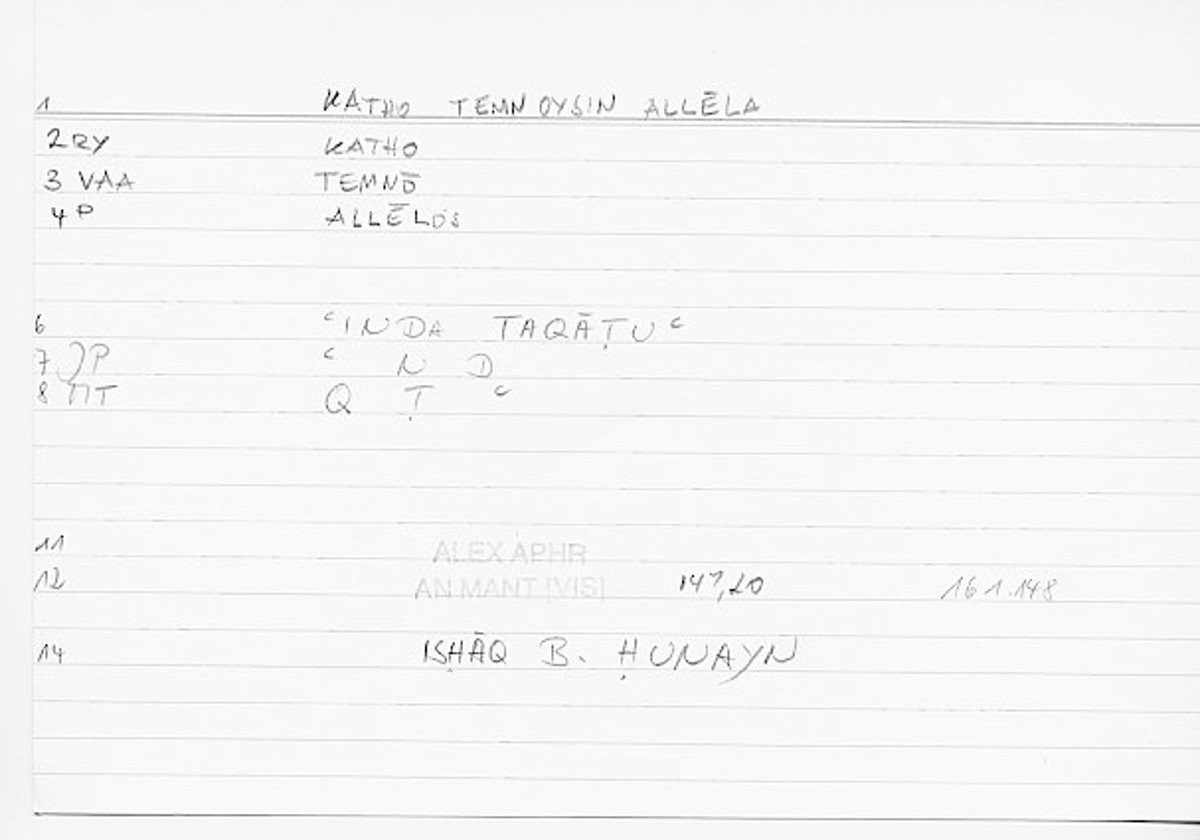 1 KATHO TEMNOYSIN ALLĒLA
2 RY KATHO
3 VAA TEMNŌ
4 P ALLĒLOS
6 ʿINDA TAQĀṬUʿ
7 JP ʿ N D
8 ΠT Q Ṭ ʿ
11 ALEX APHR
12 AN MANT [VIS] 147,20 161.148
14 ISḤĀQ B. ḤUNAYN